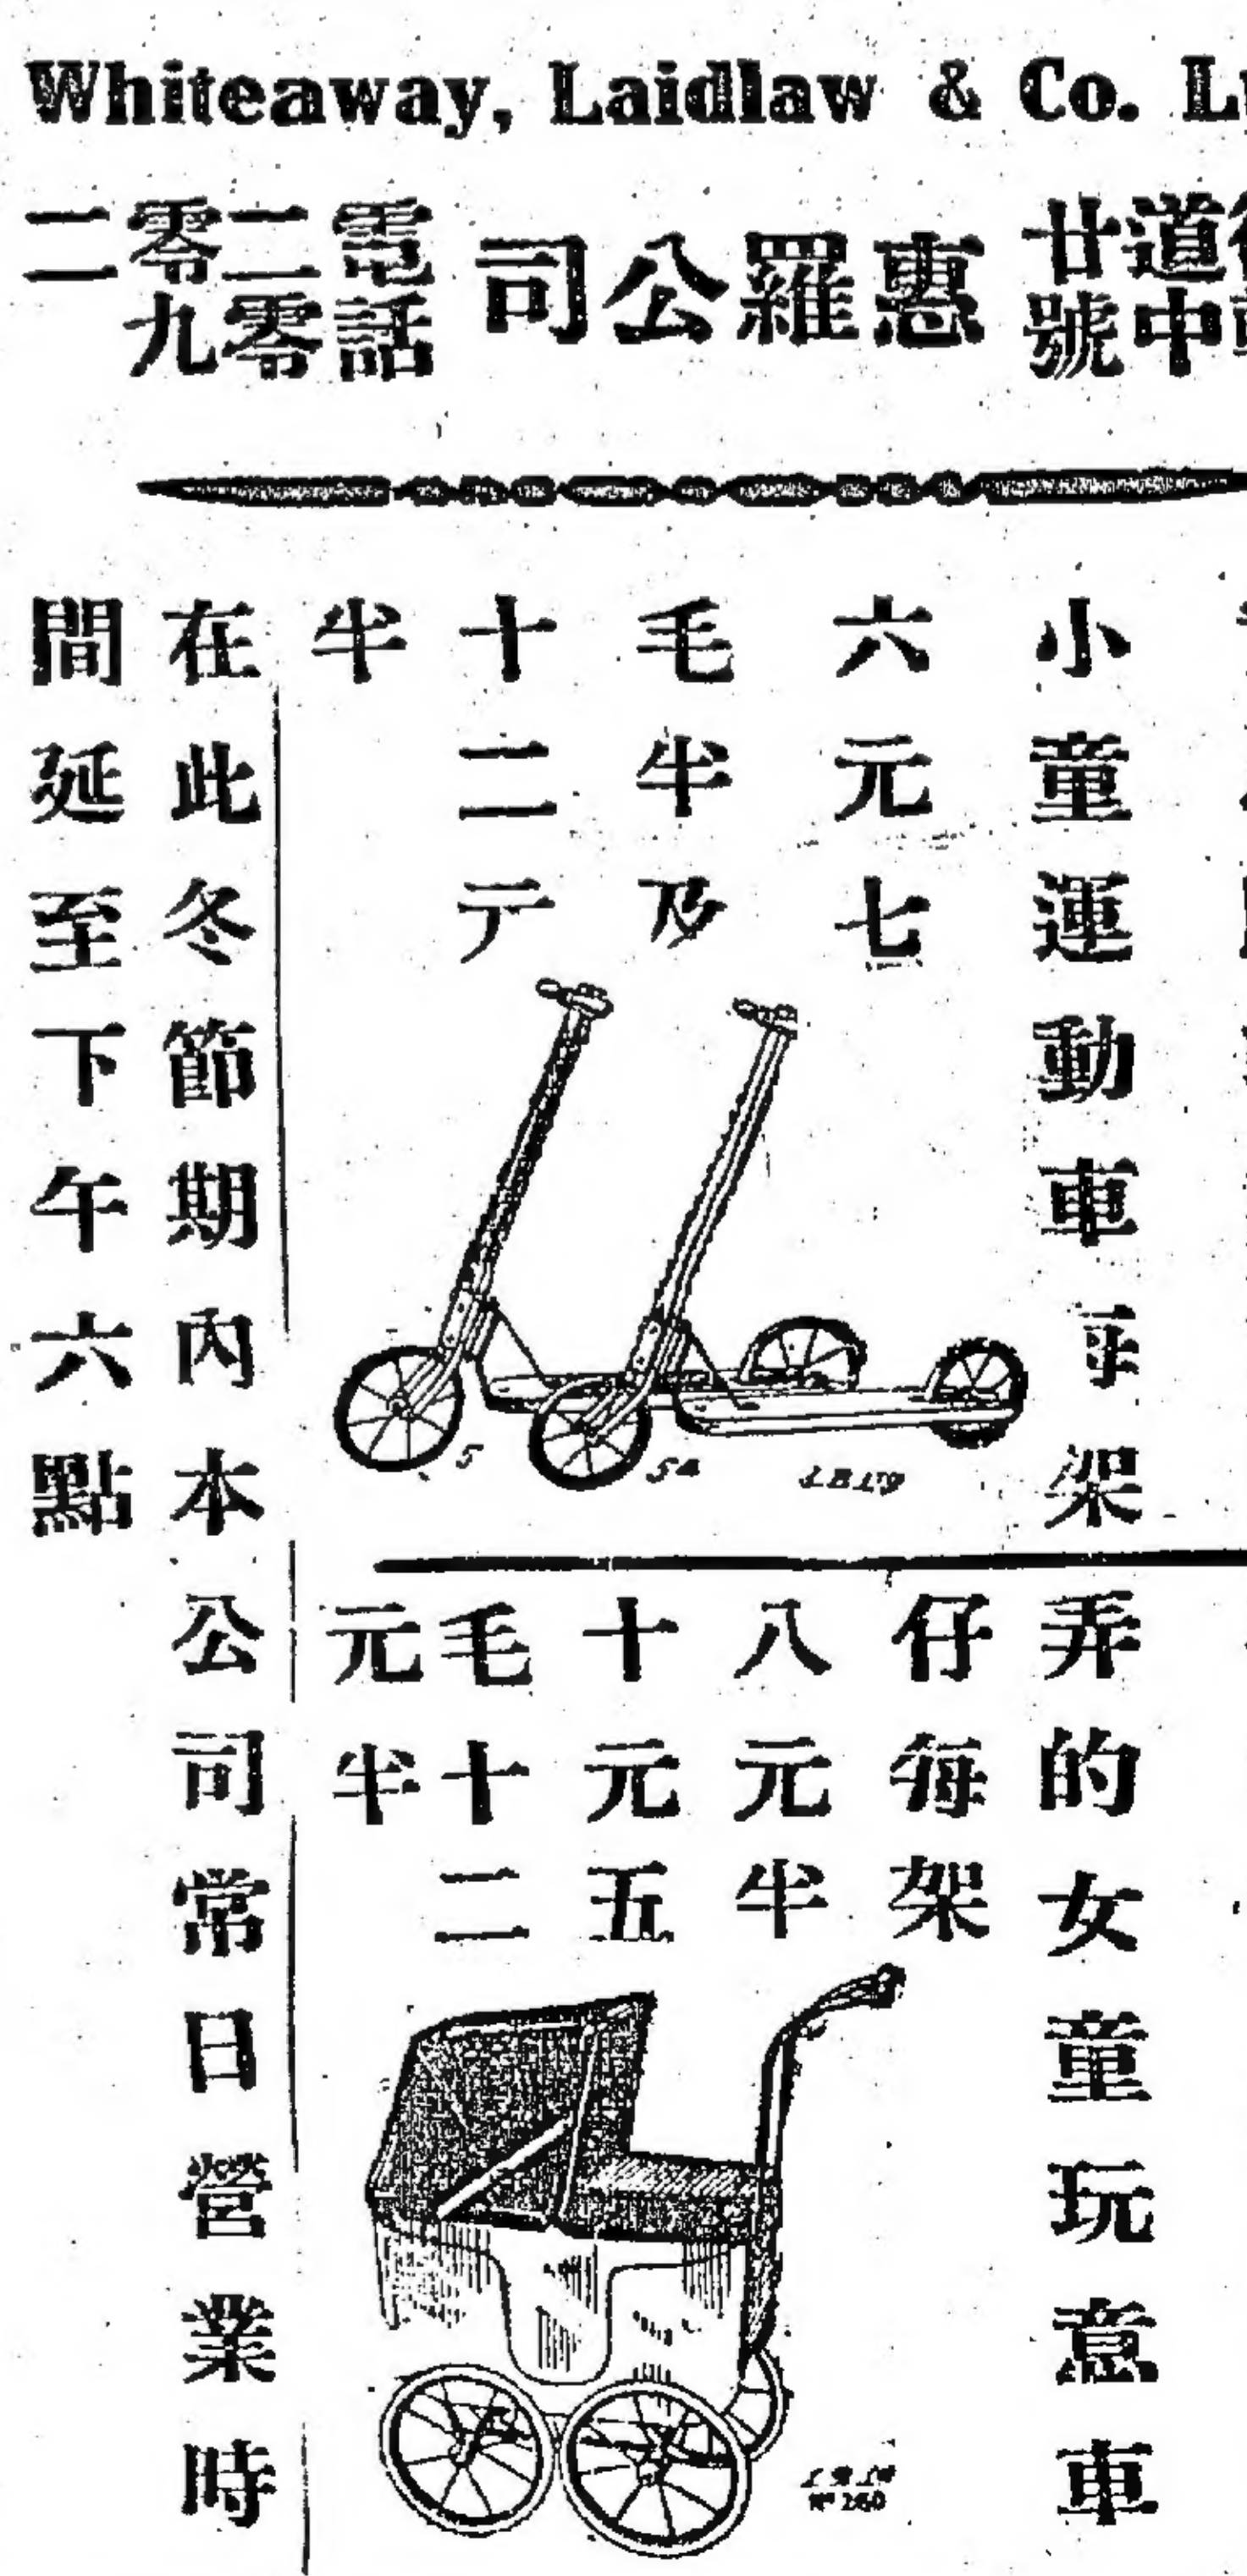 Whiteaway, Laidlaw & Co.
道中
廿號
惠羅公司
電話
二零
零九
二
小童運動車每架
六元七
毛半及
十二元
半
5
5A
弄的女童玩意車
仔每架
八元半
十元五
毛十二
元半
Nº 260
在此冬節期內本公司常日營業時
間延至下午六點